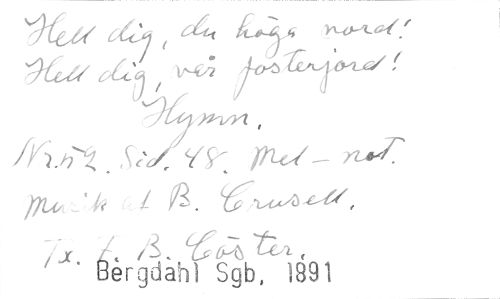 Hell dig, du höga nord!
Hell dig, vår fosterjord!
Hymn.
Nr. 52. Sid. 48. Mel-not.
Musik af B. Crusell.
Tx. F. B. Cöster.
Bergdahl Sgb, 1891